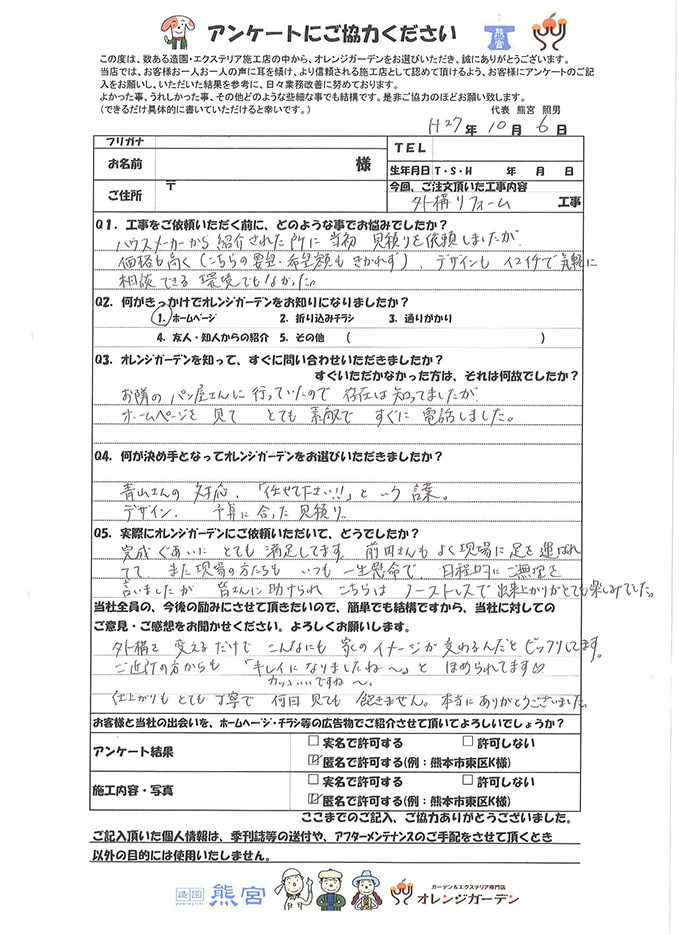 アンケートにご協力ください
熊宮
この度は、数ある造園・エクステリア施工店の中から、オレンジガーデンをお選びいただき、誠にありがとうございます。
当店では、お客様お一人お一人の声に耳を傾け、より信頼される施工店として認めて頂けるよう、お客様にアンケートのご記
入をお願いし、いただいた結果を参考に、日々業務改善に努めております。
よかった事、うれしかった事、その他どのような些細な事でも結構です。是非ご協力のほどお願い致します。
(できるだけ具体的に書いていただけると幸いです。) 代表 熊宮 照男
H27年 10月 6日
フリガナ
TEL
お名前 様
生年月日 T・S・H 年 月 日
ご住所 〒
今回、ご注文頂いた工事内容
外構リフォーム 工事
Q1. 工事をご依頼いただく前に、どのような事でお悩みでしたか?
ハウスメーカーから紹介された所に当初 見積りを依頼しましたが
価格も高く(こちらの要望・希望額もきかれず)、デザインも イマイチで気軽に
相談できる 環境でもなかった。
Q2. 何がきっかけでオレンジガーデンをお知りになりましたか?
1. ホームページ 2. 折り込みチラシ 3. 通りがかり
4. 友人・知人からの紹介 5. その他 ( )
Q3. オレンジガーデンを知って、すぐに問い合わせいただきましたか?
すぐいただかなかった方は、それは何故でしたか?
お隣の パン屋さんに 行っていたので 存在は 知ってましたが、
ホームページを 見て とても 素敵で すぐに 電話しました。
Q4. 何が決め手となってオレンジガーデンをお選びいただきましたか?
青山さんの 対応、「任せて下さい!!」と いう 言葉。
デザイン、 予算に 合った 見積り
Q5. 実際にオレンジガーデンにご依頼いただいて、どうでしたか?
完成ぐあいに とても 満足してます。前田さんも よく現場に 足を 運ばれ
てて また 現場の方たちも いつも 一生懸命で、日程的に ご無理を
言いましたが 皆さんに 助けられ こちらは ノーストレスで 出来上がりがとても楽しみでした。
当社全員の、今後の励みにさせて頂きたいので、簡単でも結構ですから、当社に対しての
ご意見・ご感想をお聞かせください。よろしくお願いします。
外構を 変えるだけで こんなにも 家のイメージが 変わるんだと ビックリしてます。
ご近所の方からも 「キレイになりましたね〜。」と ほめられてます♡
カッコいいですね〜。
仕上がりも とても 丁寧で 何回 見ても 飽きません。本当に ありがとうございました。
お客様と当社の出会いを、ホームページ・チラシ等の広告物でご紹介させて頂いてよろしいでしょうか?
アンケート結果
□ 実名で許可する □ 許可しない
☑ 匿名で許可する(例:熊本市東区K様)
施工内容・写真
□ 実名で許可する □ 許可しない
☑ 匿名で許可する(例:熊本市東区K様)
ここまでのご記入、ご協力ありがとうございました。
ご記入頂いた個人情報は、季刊誌等の送付や、アフターメンテナンスのご手配をさせて頂くとき
以外の目的には使用いたしません。
造園 熊宮
ガーデン&エクステリア専門店
オレンジガーデン